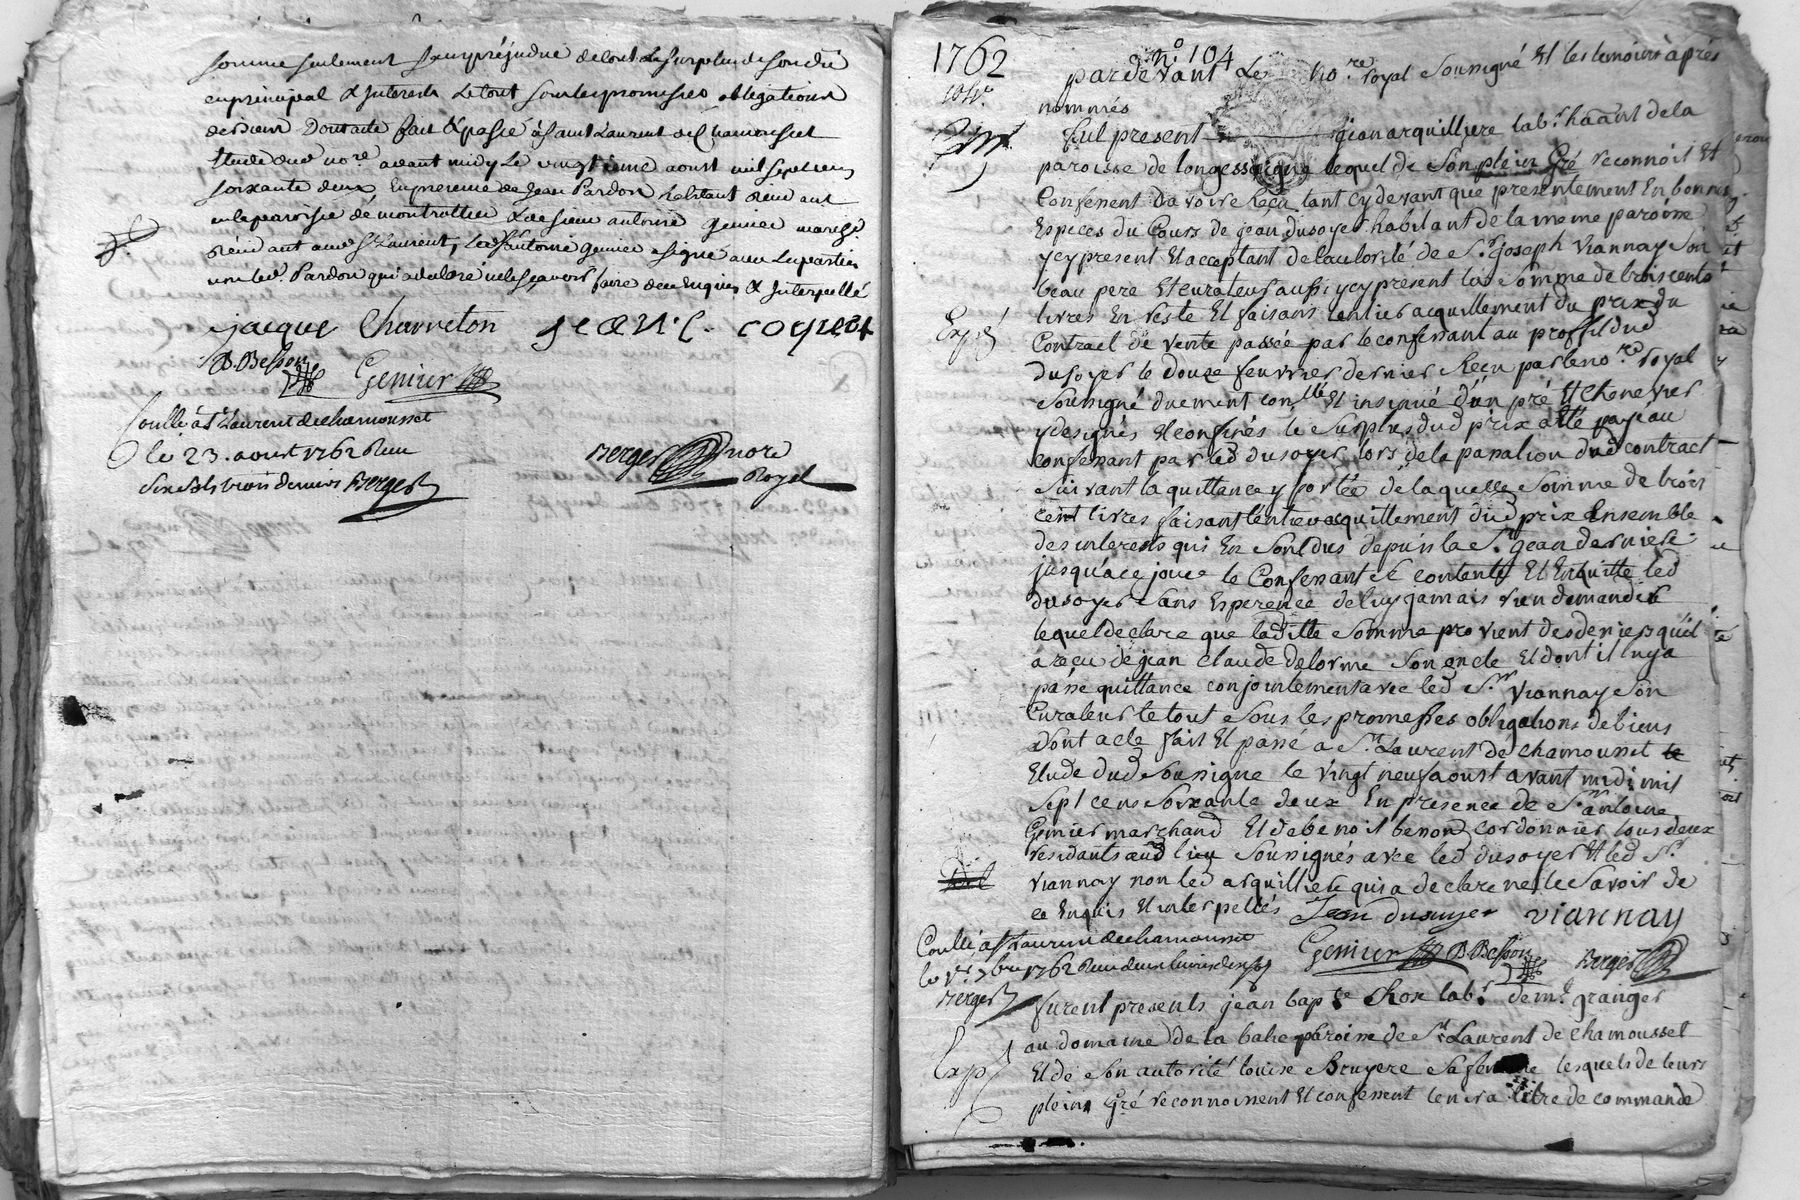 somme seulement sans préjudice de tout le surplus de son dû
en principal & interets le tout sous les promesses obligations
de biens Dont acte fait & passé à saint Laurent de Chamousset
Etude dud nore avant midy le vingtieme aoust mil sept cens
soixante deux En presence de Jean Pardon habitant
en la paroisse de montrottier & de sieur antoine Genier march.
resid ant aud St Laurent, led s. antoine genier signé avec les parties
non led. Pardon qui a declaré ne le sçavoir faire de ce Enquis & Interpellé
jacque Charreton jean C. coquet
B. Besson Genier
Coullé à St Laurent de chamousset
le 23. aoust 1762 Reçu
six sols trois deniers Berger
Berger nore
Royal
1762
n.o 104
par devant Le no.re royal soussigné Et les temoins après
nommés
Fut present jean arquilliere lab.r ha ant de la
paroisse de longessaigne lequel de Son plein Gré reconnoit Et
Confessent d'avoir reçu tant cy devant que presentement En bonnes
Especes du Cours de jean dusoyer habitant de la meme paroisse
ycy present Et acceptant de l'autorité de S.r joseph Viannay Son
beau pere Et curateur aussi ycy present la Somme de trois cents
livres En reste Et faisant l'entier acquittement du prix du
Exp.é
Contract de vente passée par le confessant au proffit dud
dusoyer le douze feuvrier dernier Reçu par le no.re royal
soussigné duement con.llé Et insinué d'un pré Et chenevier
y designés Et confinés le Surplus dud prix a été payé au
confessant par led dusoyer lors de la passation dud contract
suivant la quittance y portée de laquelle Somme de trois
cent livres faisant l'entier acquittement dud prix Ensemble
des interets qui En sont dus depuis la S.t jean derniere
jusqu'à ce jour le Confessant Se contente Et En quitte led
dusoyer Sans Esperence de luy jamais rien demander
lequel declare que laditte Somme provient des deniers qu'il
a reçu de jean claude delorme Son oncle Et dont il luy a
passé quittance conjointement avec led S.r Viannay Son
Curateur le tout Sous les promesses obligations de biens
dont acte fait Et passé a S.t Laurent de chamousset
Etude dud Soussigne le vingt neuf aoust avant midi mil
Sept cens Soixante deux En presence de S.r antoine
Genier marchand Et de benoit benond cordonnier tous deux
residants aud lieu Soussignés avec led dusoyer Et led S.r
Viannay non led arquilliere qui a declare ne le Savoir de
ce Enquis Et interpellés Jean dusuyer viannay
Coullé à St Laurent de chamousset
le 1.er 7bre 1762 Reçu deux livres
Berger
Genier B. Besson Berger
furent presents jean bap.te Chose lab.r de m.e granger
au domaine de la bahe paroisse de S.t Laurent de chamousset
Exp
Et de Son autorité louise Bruyere Sa femme lesquels de leurs
pleins Gré reconnoissent Et confessent tenir a titre de commande